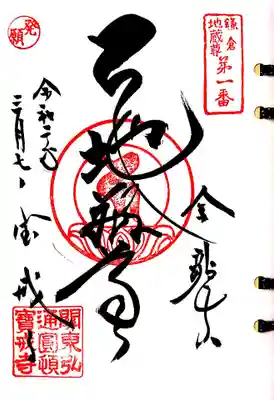 発願
鎌倉
地蔵尊
第一番
金龍山
地蔵尊
令和二年
三月七日
宝戒寺
關東弘
通圓頓
寶戒寺